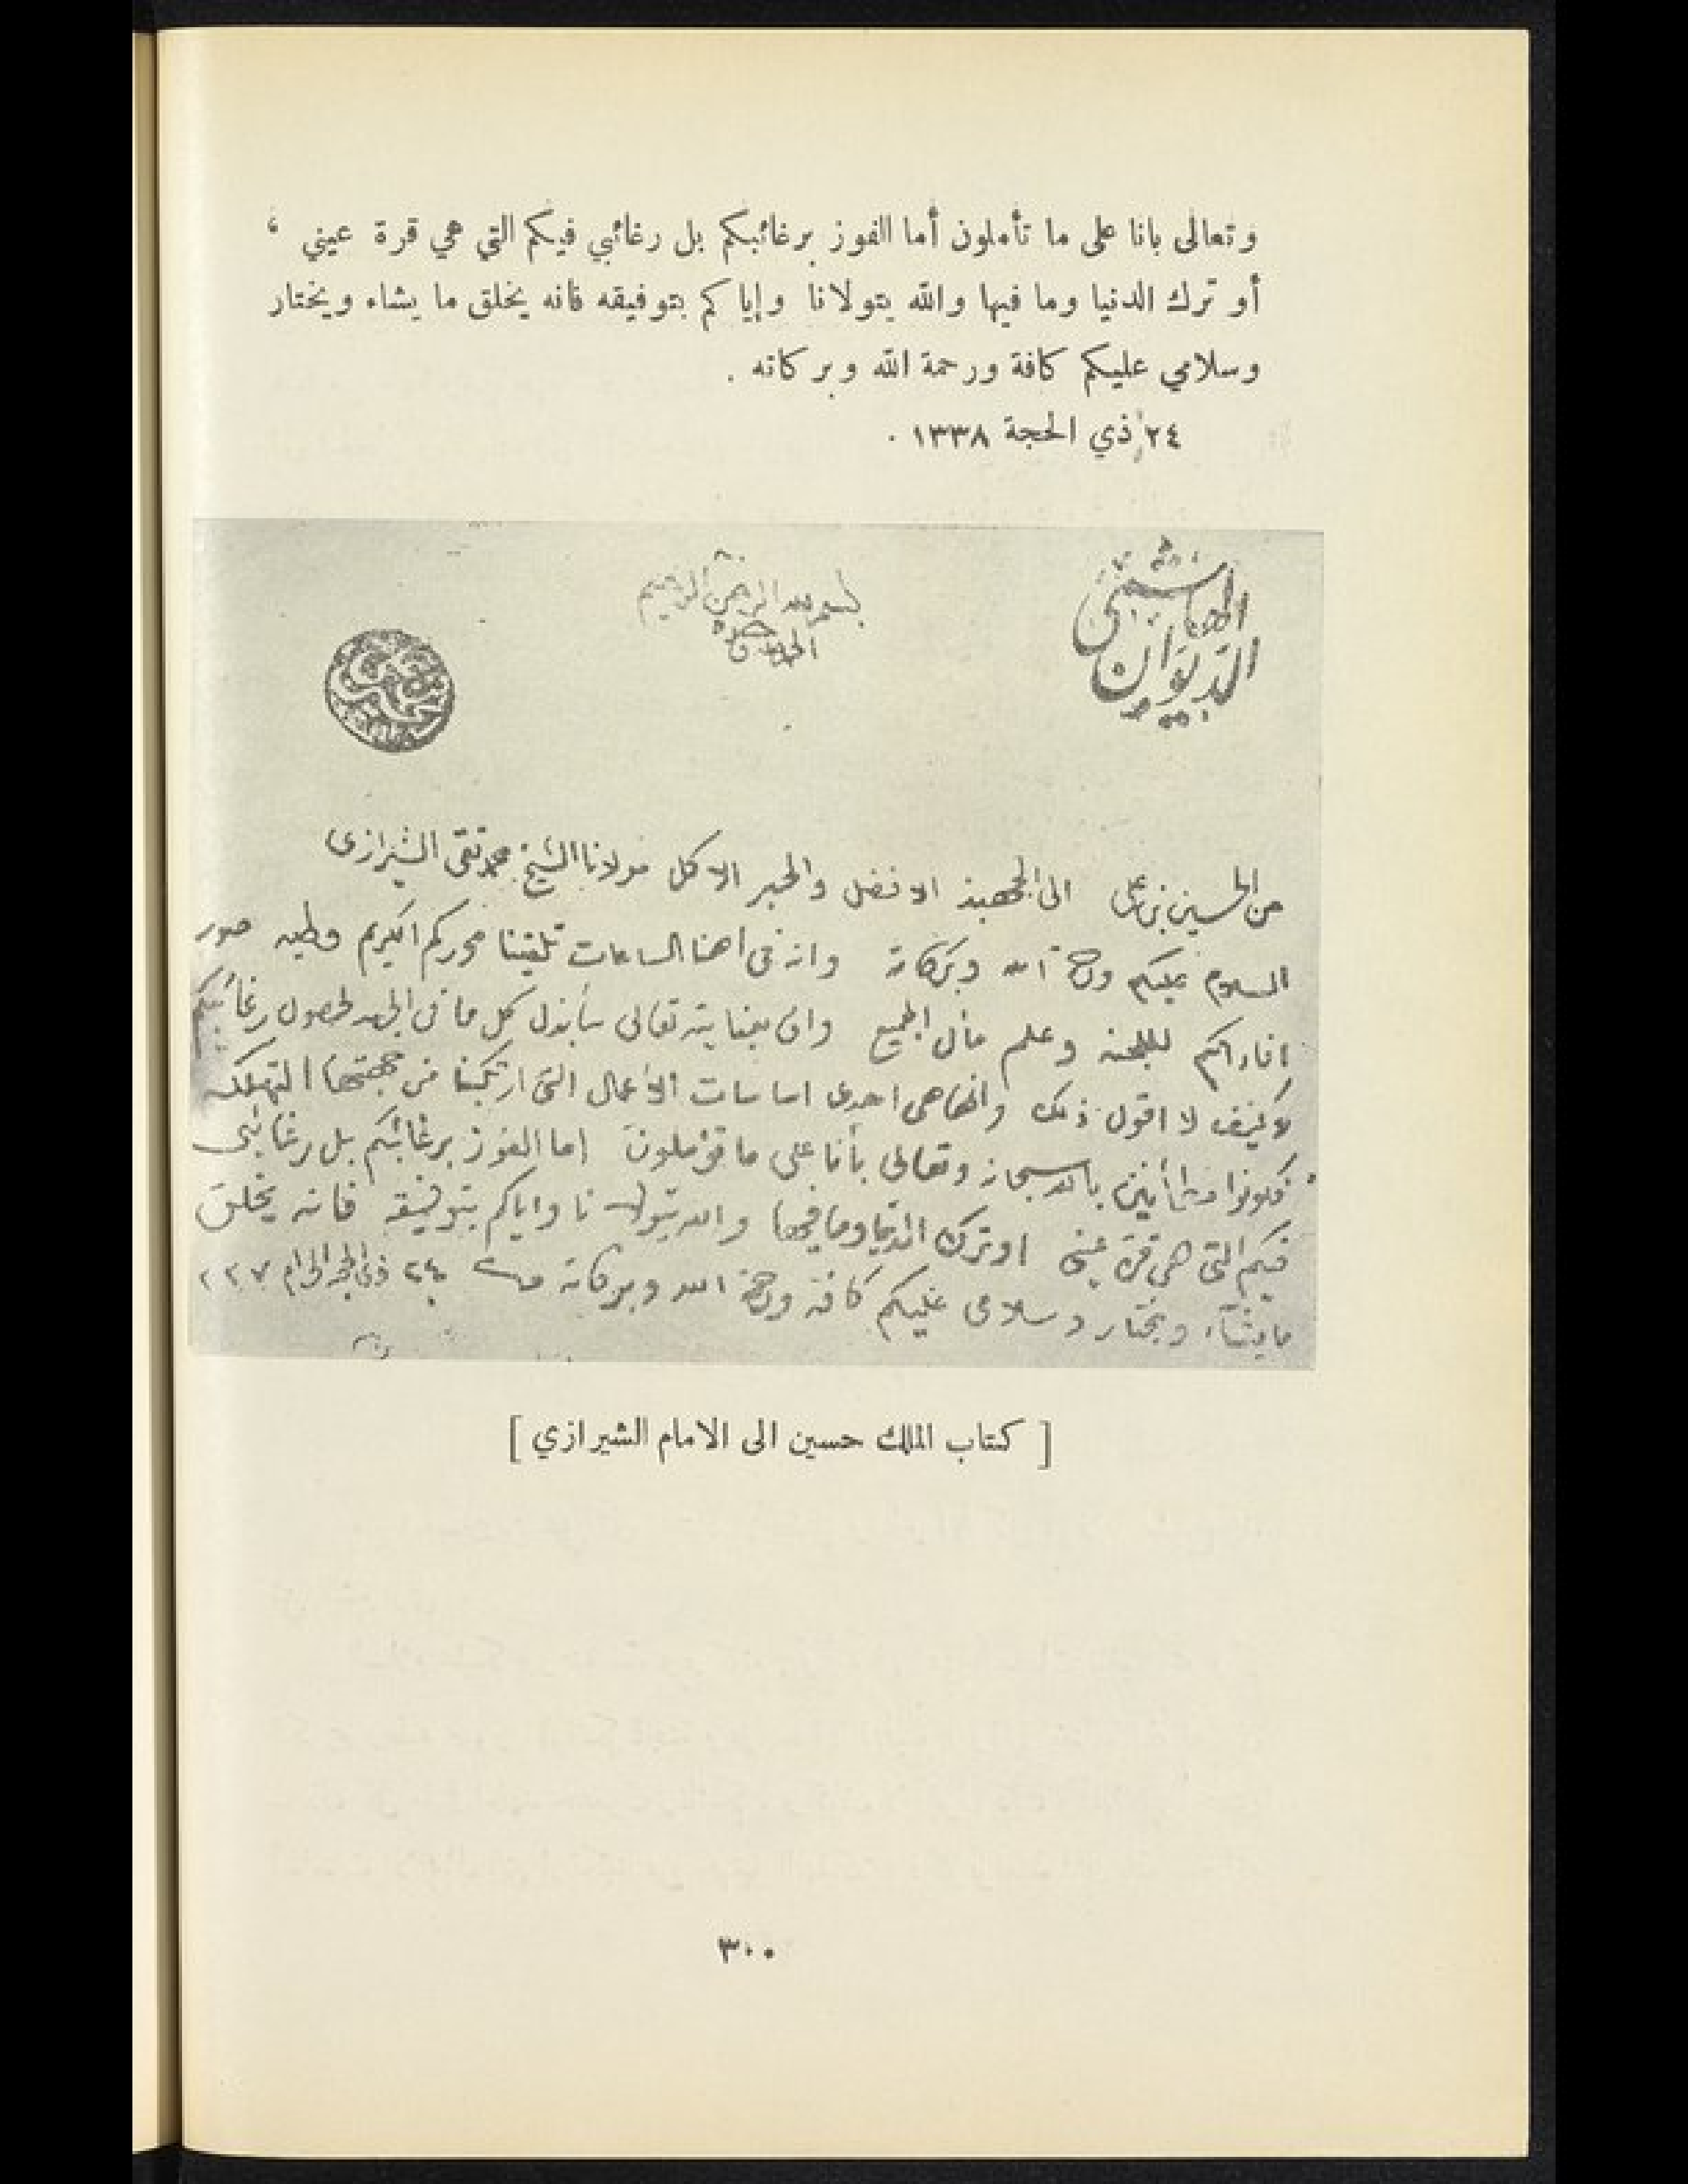 وتعالى بانا على ما تأملون أما الفوز برغائبكم بل رغائبي فيكم التي هي قرة عيني ،
أو ترك الدنيا وما فيها والله يتولانا وإياكم بتوفيقه فانه يخلق ما يشاء ويختار
وسلامي عليكم كافة ورحمة الله وبركاته .
٢٤ ذي الحجة ١٣٣٨ .
بسم الله الرحمن الرحيم
الديوان الهاشمي
من الحسين بن علي الى الجهبذ الافضل والحبر الاكمل مولانا الشيخ محمد تقى الشيرازى
السلام عليكم ورحمة الله وبركاته وانه فى اهنا الساعات تلقينا محرركم الكريم وطيه صور
افاداتكم للجنه وعلم مآل الجميع وان بعنايته تعالى سأبذل كل ما فى الجهد لحصول رغائبكم
وكيف لا اقول ذلك وانها هى احدى اساسات الاعمال التى ارتكبنا من جهتها التهلكه
فكونوا مطمأنين بالله سبحانه وتعالى بأنا على ما تؤملون اما الفوز برغائبكم بل رغائبى
فيكم التى هي قرة عينى او ترك الدنيا وما فيها والله يتولانا واياكم بتوفيقه فانه يخلق
ما يشآء ويختار وسلامى عليكم كافة ورحمة الله وبركاته ٢٤ ذى الحجة الحرام
[ كتاب الملك حسين الى الامام الشيرازي ]
٣٠٠